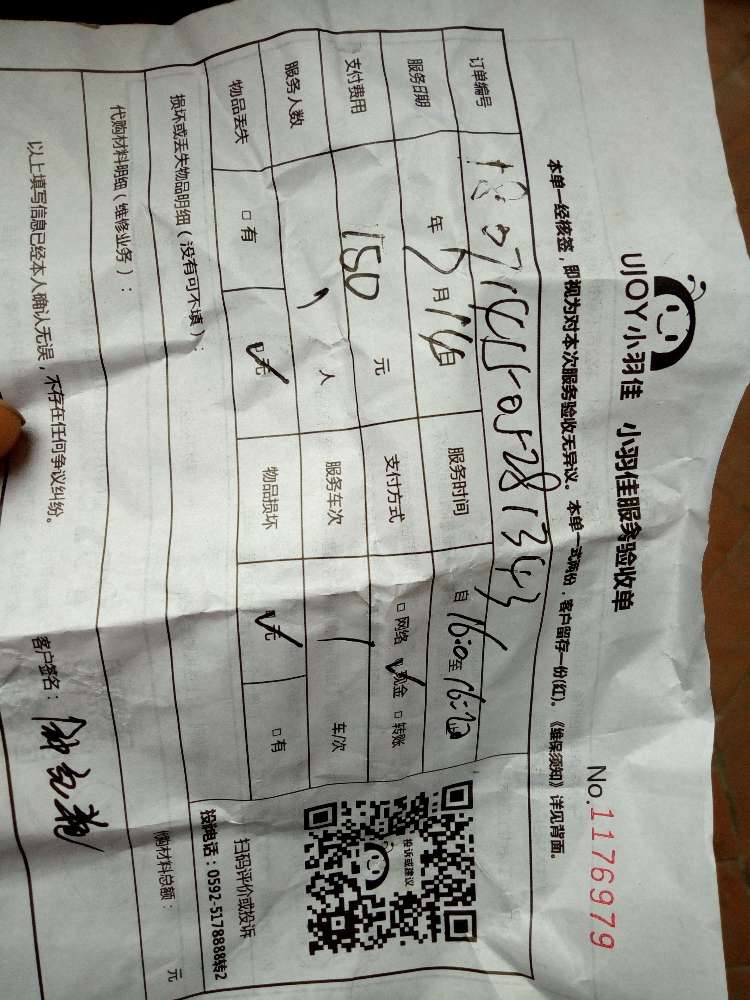 UJOY小羽佳 小羽佳服务验收单
No.1176979
本单一经核签，即视为对本次服务验收无异议。本单一式两份，客户留存一份(红)。《维保须知》详见背面。
订单编号
服务日期 年 7月16日 服务时间 自16:00至
支付费用 150 元 支付方式 □网络 ☑现金 □转账
服务人数 1 人 服务车次 1 车/次
物品丢失 □有 ☑无 物品损坏 ☑无 □有
损坏或丢失物品明细（没有可不填）：
代购材料明细（维修业务）：
购材料总额： 元
投诉或建议
扫码评价或投诉
投电话：0592-5178888转2
以上填写信息已经本人确认无误，不存在任何争议纠纷。
客户签名：